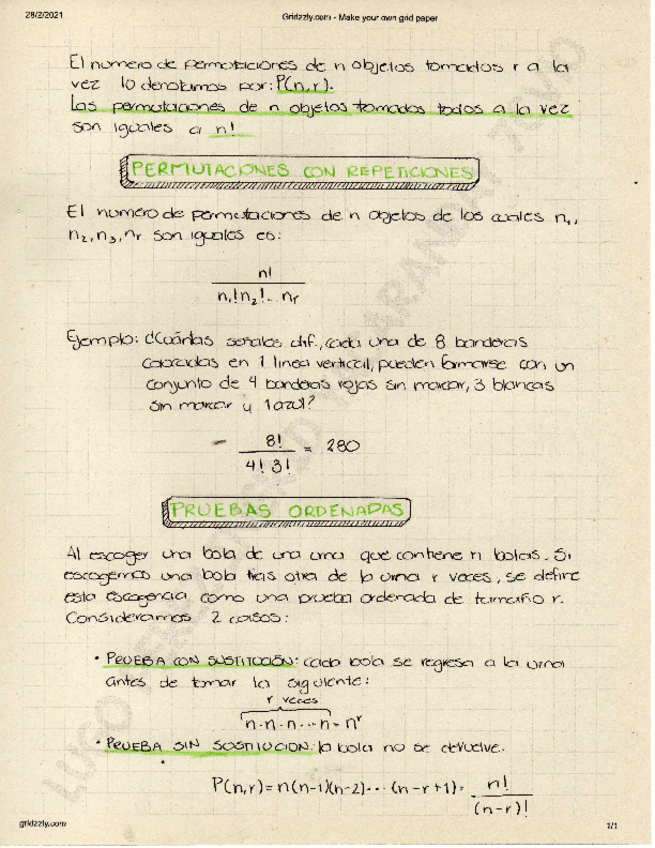 28/2/2021
Gridzzly.com - Make your own grid paper
El numero de permutaciones de n objetos tomados r a la
vez lo denotamos por: P(n,r).
Las permutaciones de n objetos tomados todos a la vez
son iguales a n!
PERMUTACIONES CON REPETICIONES
El numero de permutaciones de n objetos de los cuales n₁,
n₂, n₃, nᵣ son iguales es:
n!
n₁! n₂! ... nᵣ
Ejemplo: ¿Cuántas señales dif., cada una de 8 banderas
colocadas en 1 linea vertical, pueden formarse con un
conjunto de 4 banderas rojas sin marcar, 3 blancas
sin marcar y 1 azul?
8!
4! 3!
= 280
PRUEBAS ORDENADAS
Al escoger una bola de una urna que contiene n bolas. Si
escogemos una bola tras otra de la urna r veces, se define
esta escogencia como una prueba ordenada de tamaño r.
Consideramos 2 casos:
• PRUEBA CON SUSTITUCIÓN: cada bola se regresa a la urna
antes de tomar la siguiente:
r veces
n·n·n···n = nʳ
• PRUEBA SIN SOSTITUCION: la bola no se devuelve.
P(n,r) = n(n-1)(n-2)··· (n-r+1) = n!
(n-r)!
gridzzly.com
1/1